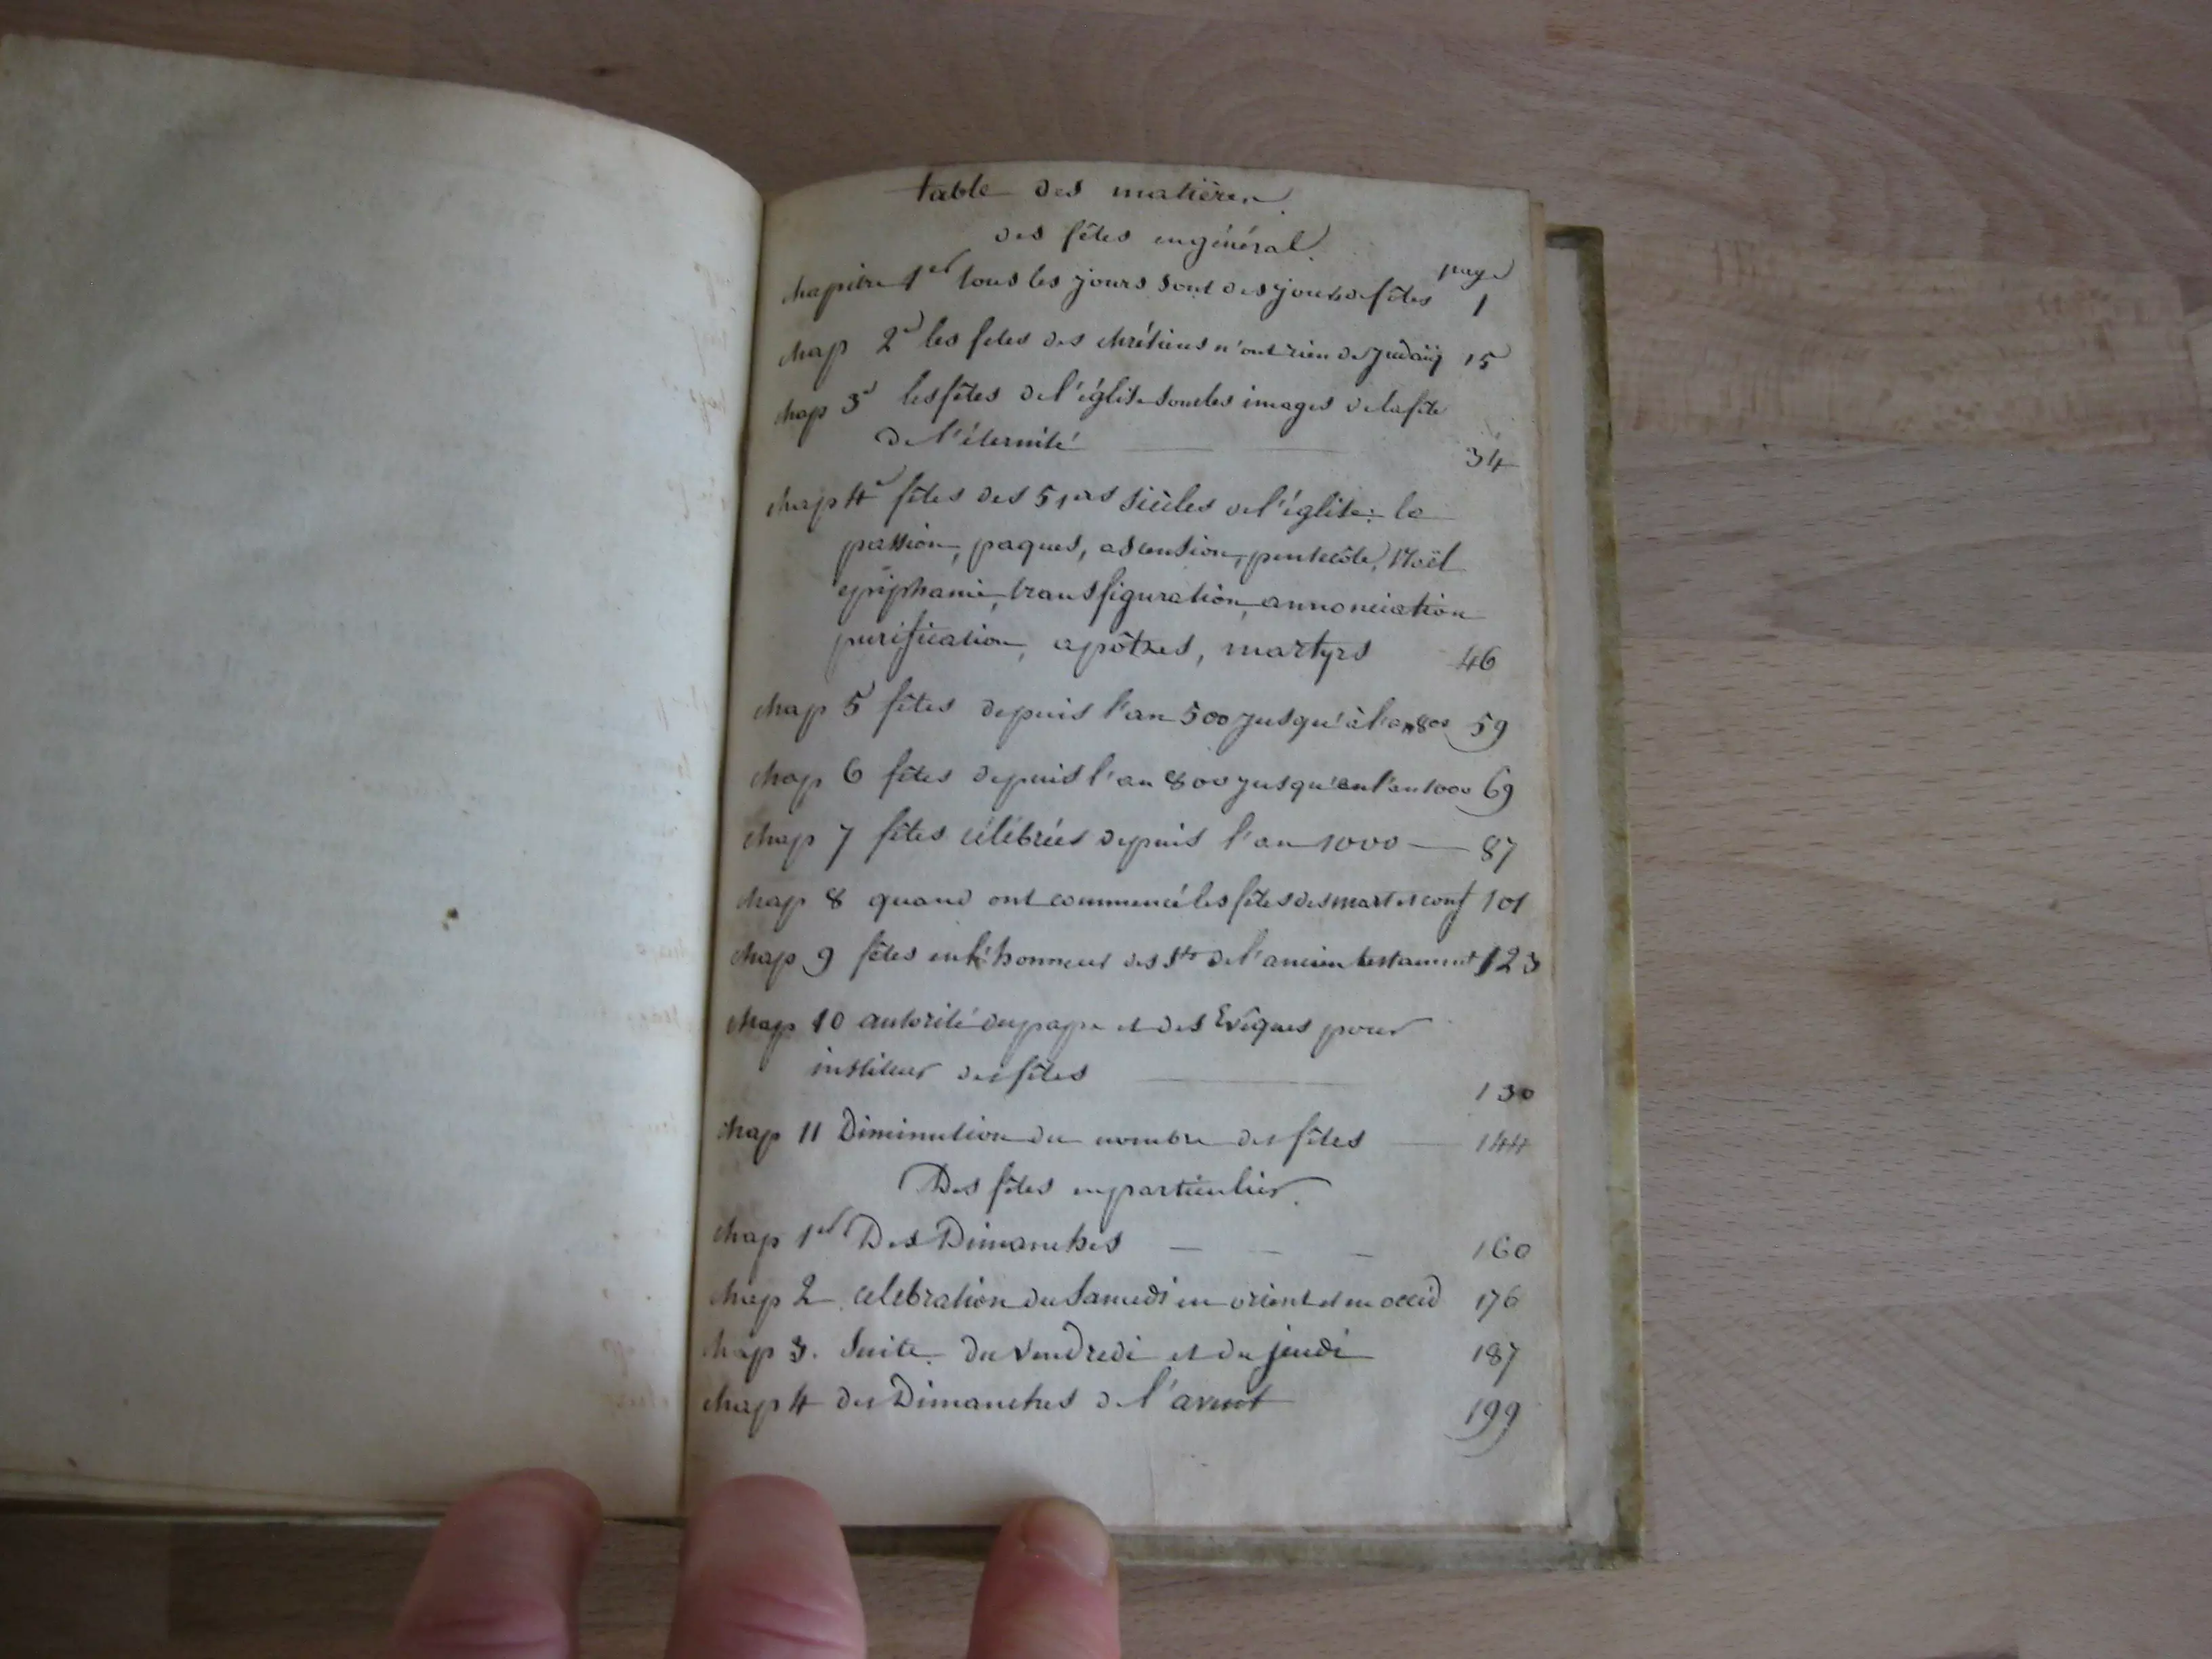 table des matières.
des fêtes en général.
page
chapitre 1er tous les jours sont des jours de fêtes 1
chap 2e les fetes des chrétiens n'ont rien de Judaiq 15
chap 3e les fêtes de l'église sont les images de la fête
de l'éternité 34
chap 4e fêtes des 5 1ers siècles de l'église: la
passion, paques, ascension, pentecôte, Noël
epiphanie, transfiguration, annonciation
purification, apôtres, martyrs 46
chap 5 fêtes depuis l'an 500 jusqu'à l'an 800 59
chap 6 fêtes depuis l'an 800 jusqu'en l'an 1000 69
chap 7 fêtes célébrées depuis l'an 1000 — 87
chap 8 quand ont commencé les fêtes des mart et conf 101
chap 9 fêtes en l'honneur des Sts de l'ancien testament 123
chap 10 autorité du pape et des Evêques pour
instituer des fêtes 130
chap 11 Diminution du nombre des fêtes — 144
Des fêtes en particulier.
chap 1er Des Dimanches — — — 160
chap 2 celebration du Samedi en orient et en occid 176
chap 3. Suite. du vendredi et du jeudi 187
chap 4 des Dimanches de l'avent 199